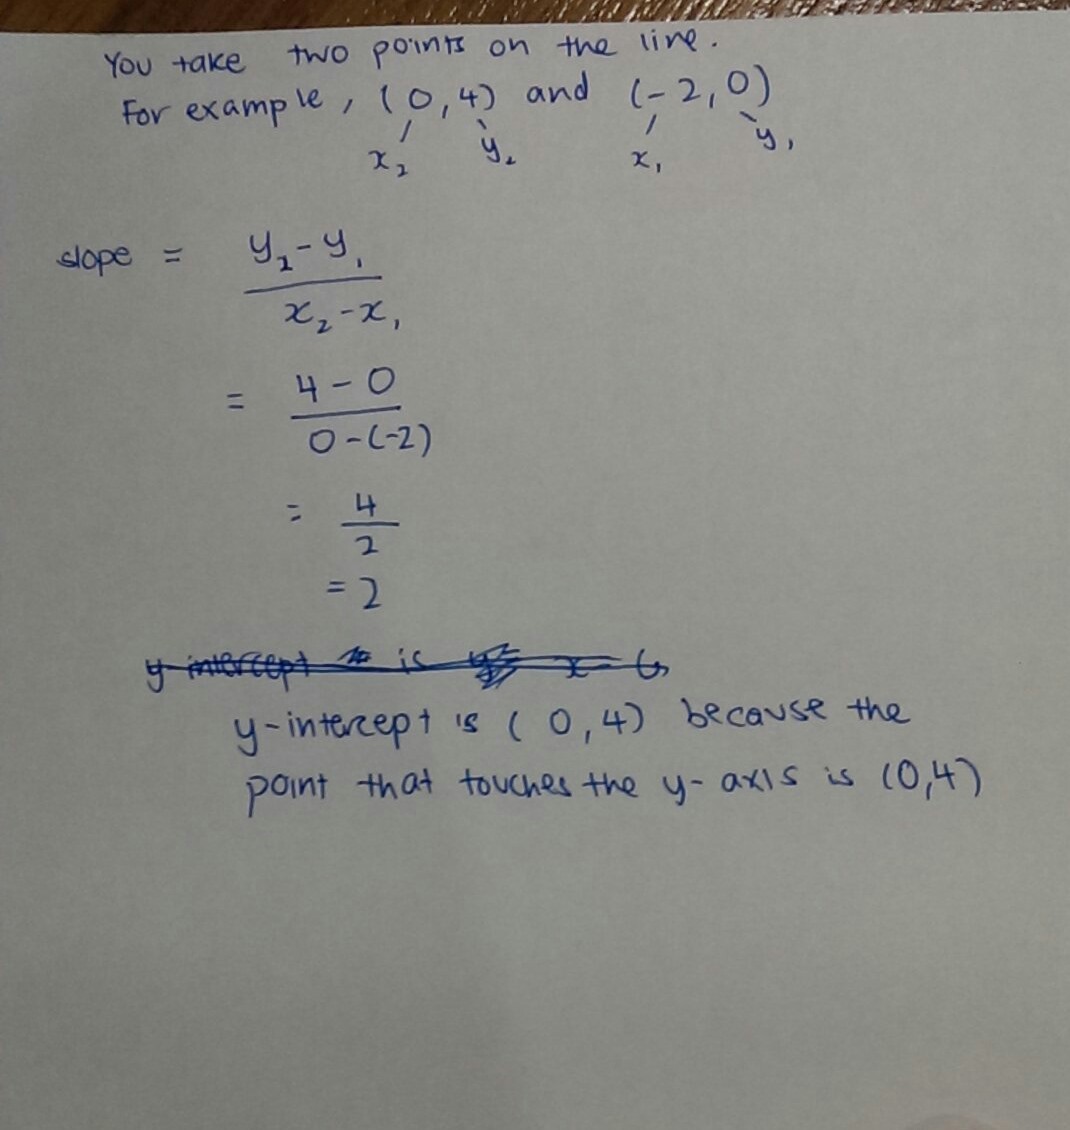 You take two points on the line.
For example, (0,4) and (-2,0)
x₂ y₂ x₁ y₁
slope = y₂-y₁
x₂-x₁
= 4-0
0-(-2)
= 4
2
= 2
y-intercept is
y-intercept is (0,4) because the
point that touches the y-axis is (0,4)